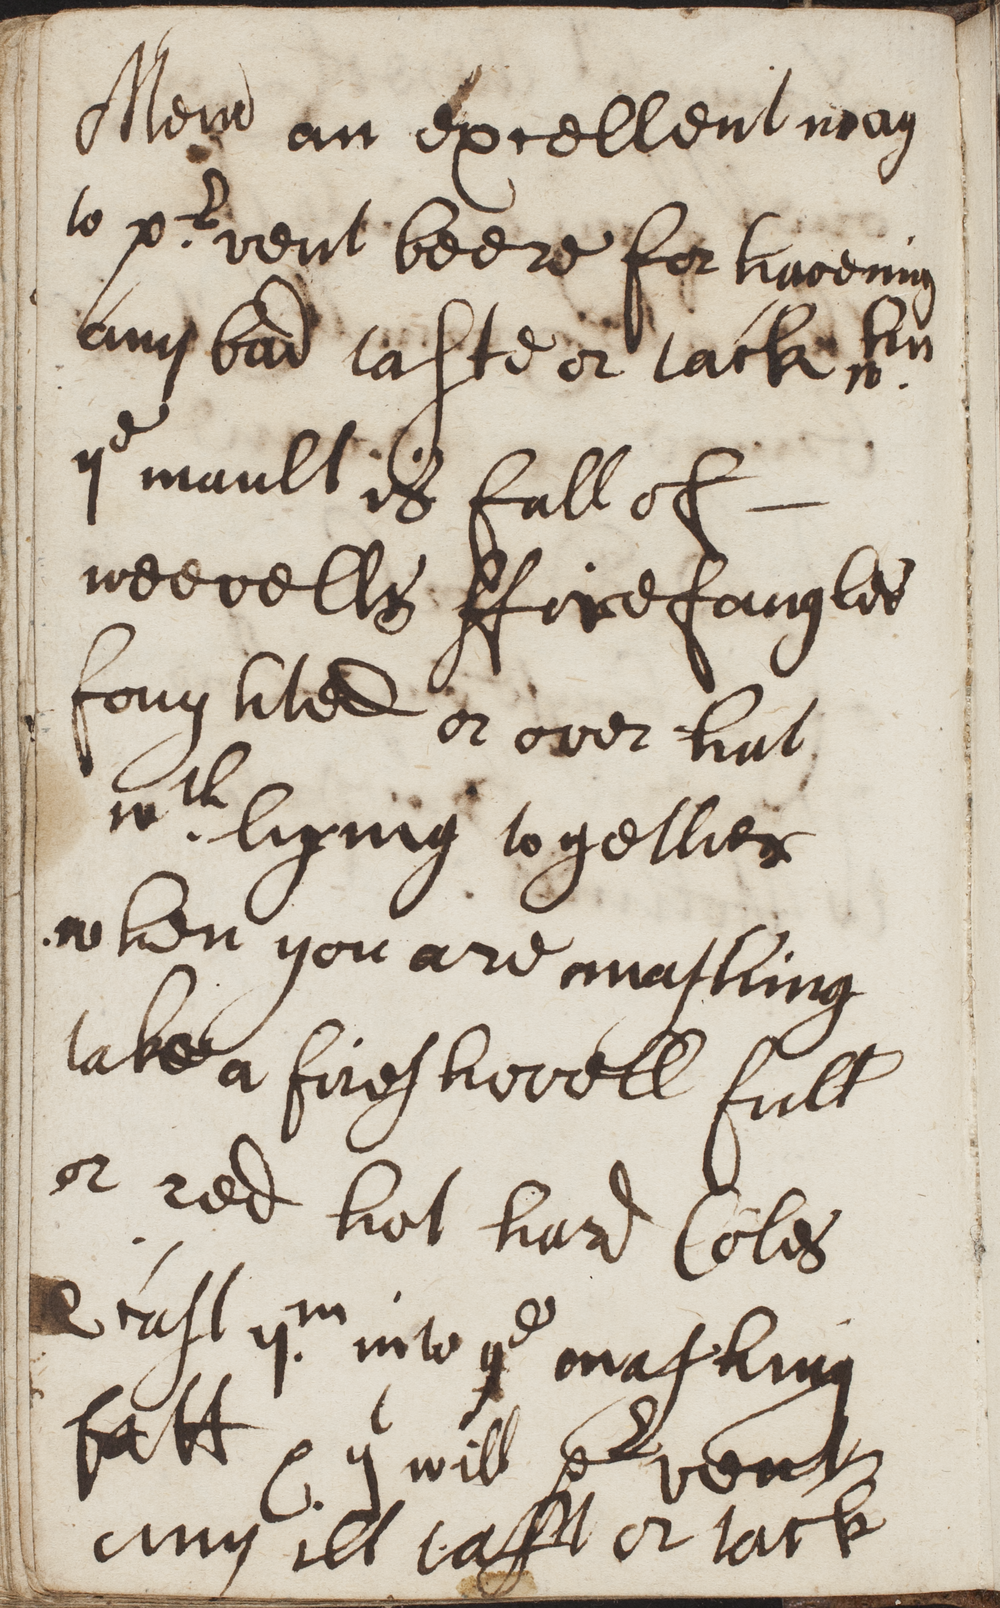 Mend an excellent way
to p.r vent beere for haveing
any bad taste or tack w.hen
ye mault is full of —
weevells ffirefangles
foughted or over hat
wth. lyxing together
when you are mashing
take a fireshovell full
or red hot hard Coles
& cast y.m into ye mashing
fatt & yt will pr vent
any ill tast or tack